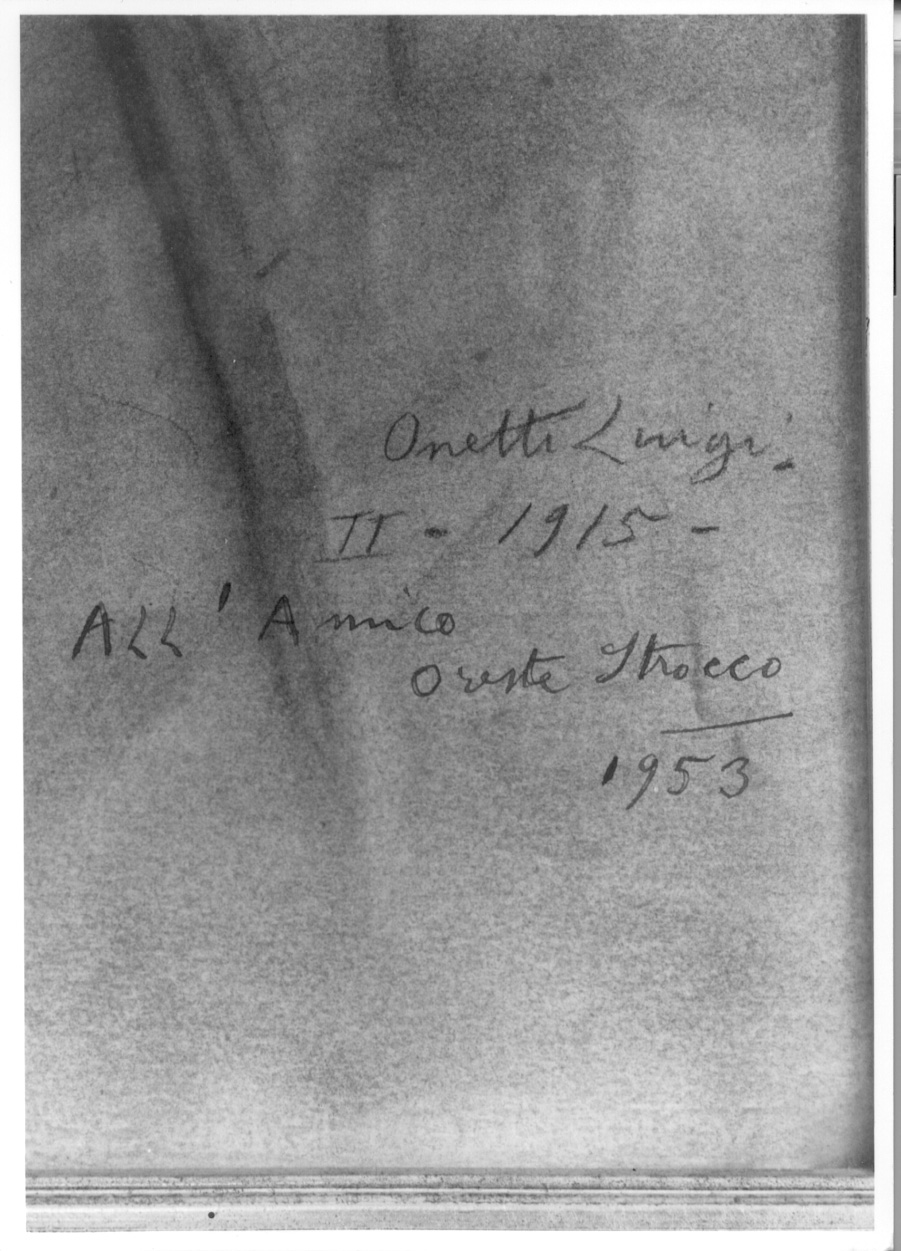 Onetti Luigi.
II - 1915 -
ALL' Amico
Oreste Strocco
1953